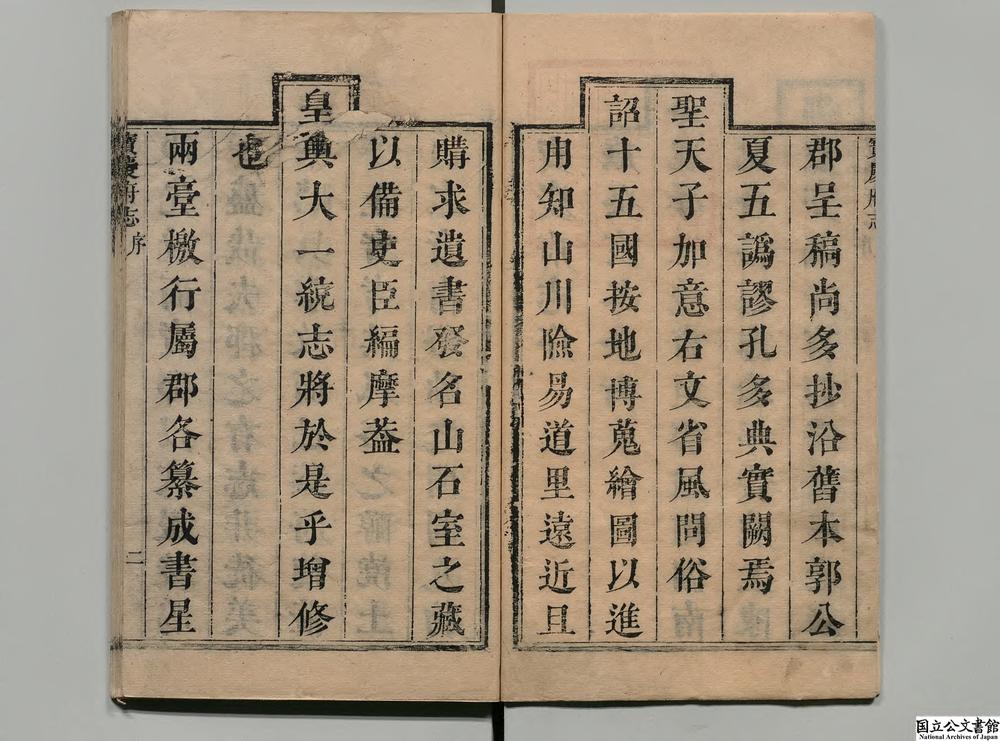 郡呈稿尚多抄沿舊本郭公
夏五譌謬孔多典實闕焉
聖天子加意右文省風問俗
詔十五國按地博蒐繪圖以進
用知山川險易道里遠近且
購求遺書發名山石室之藏
以備史臣編摩葢
皇輿大一統志將於是乎增修
也
兩臺檄行屬郡各纂成書星
寶慶府志 序
二
国立公文書館
National Archives of Japan